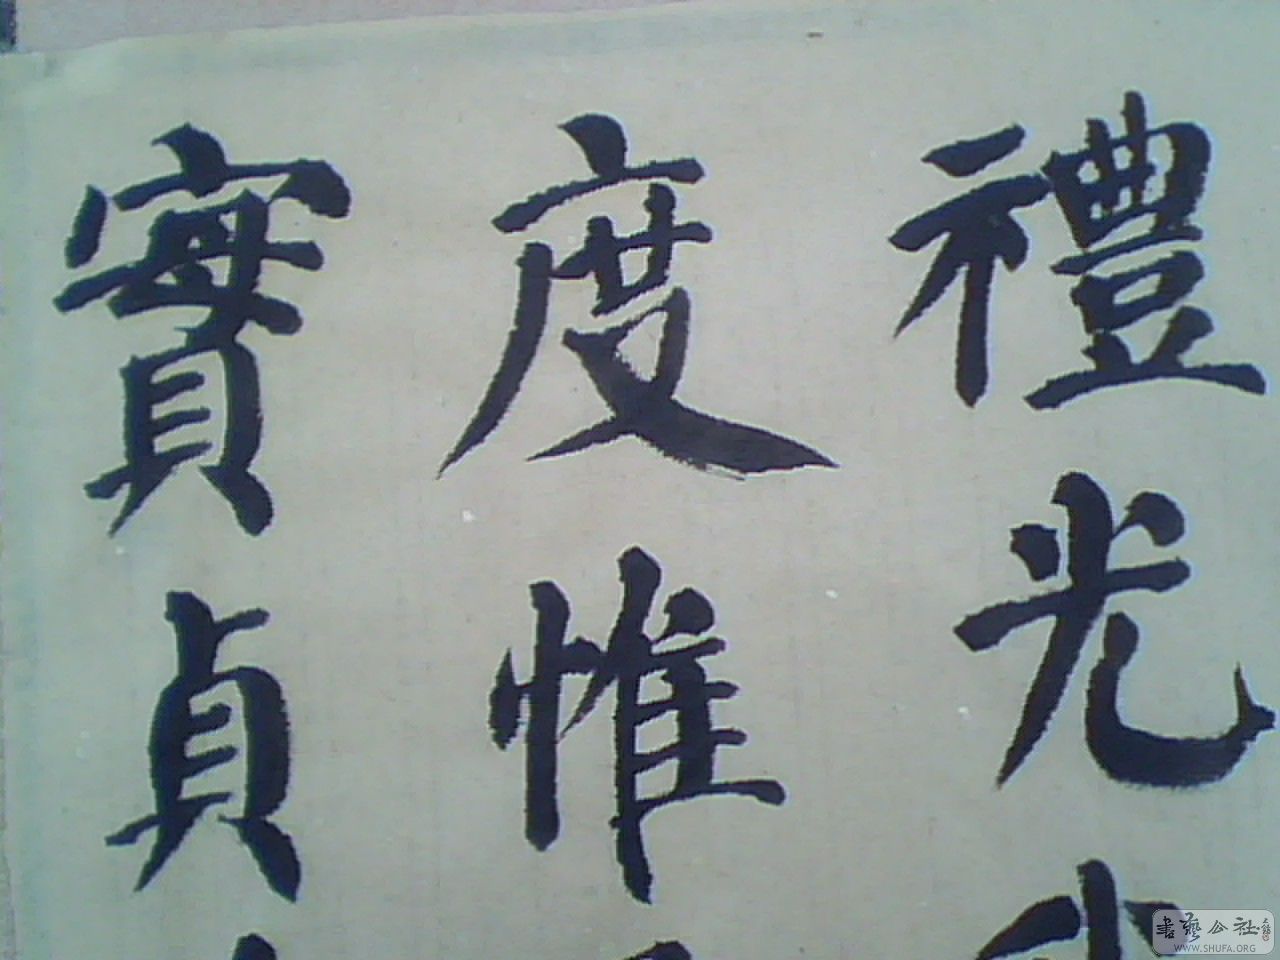 禮光
度惟
實貞
書藝公社
WWW.SHUFA.ORG